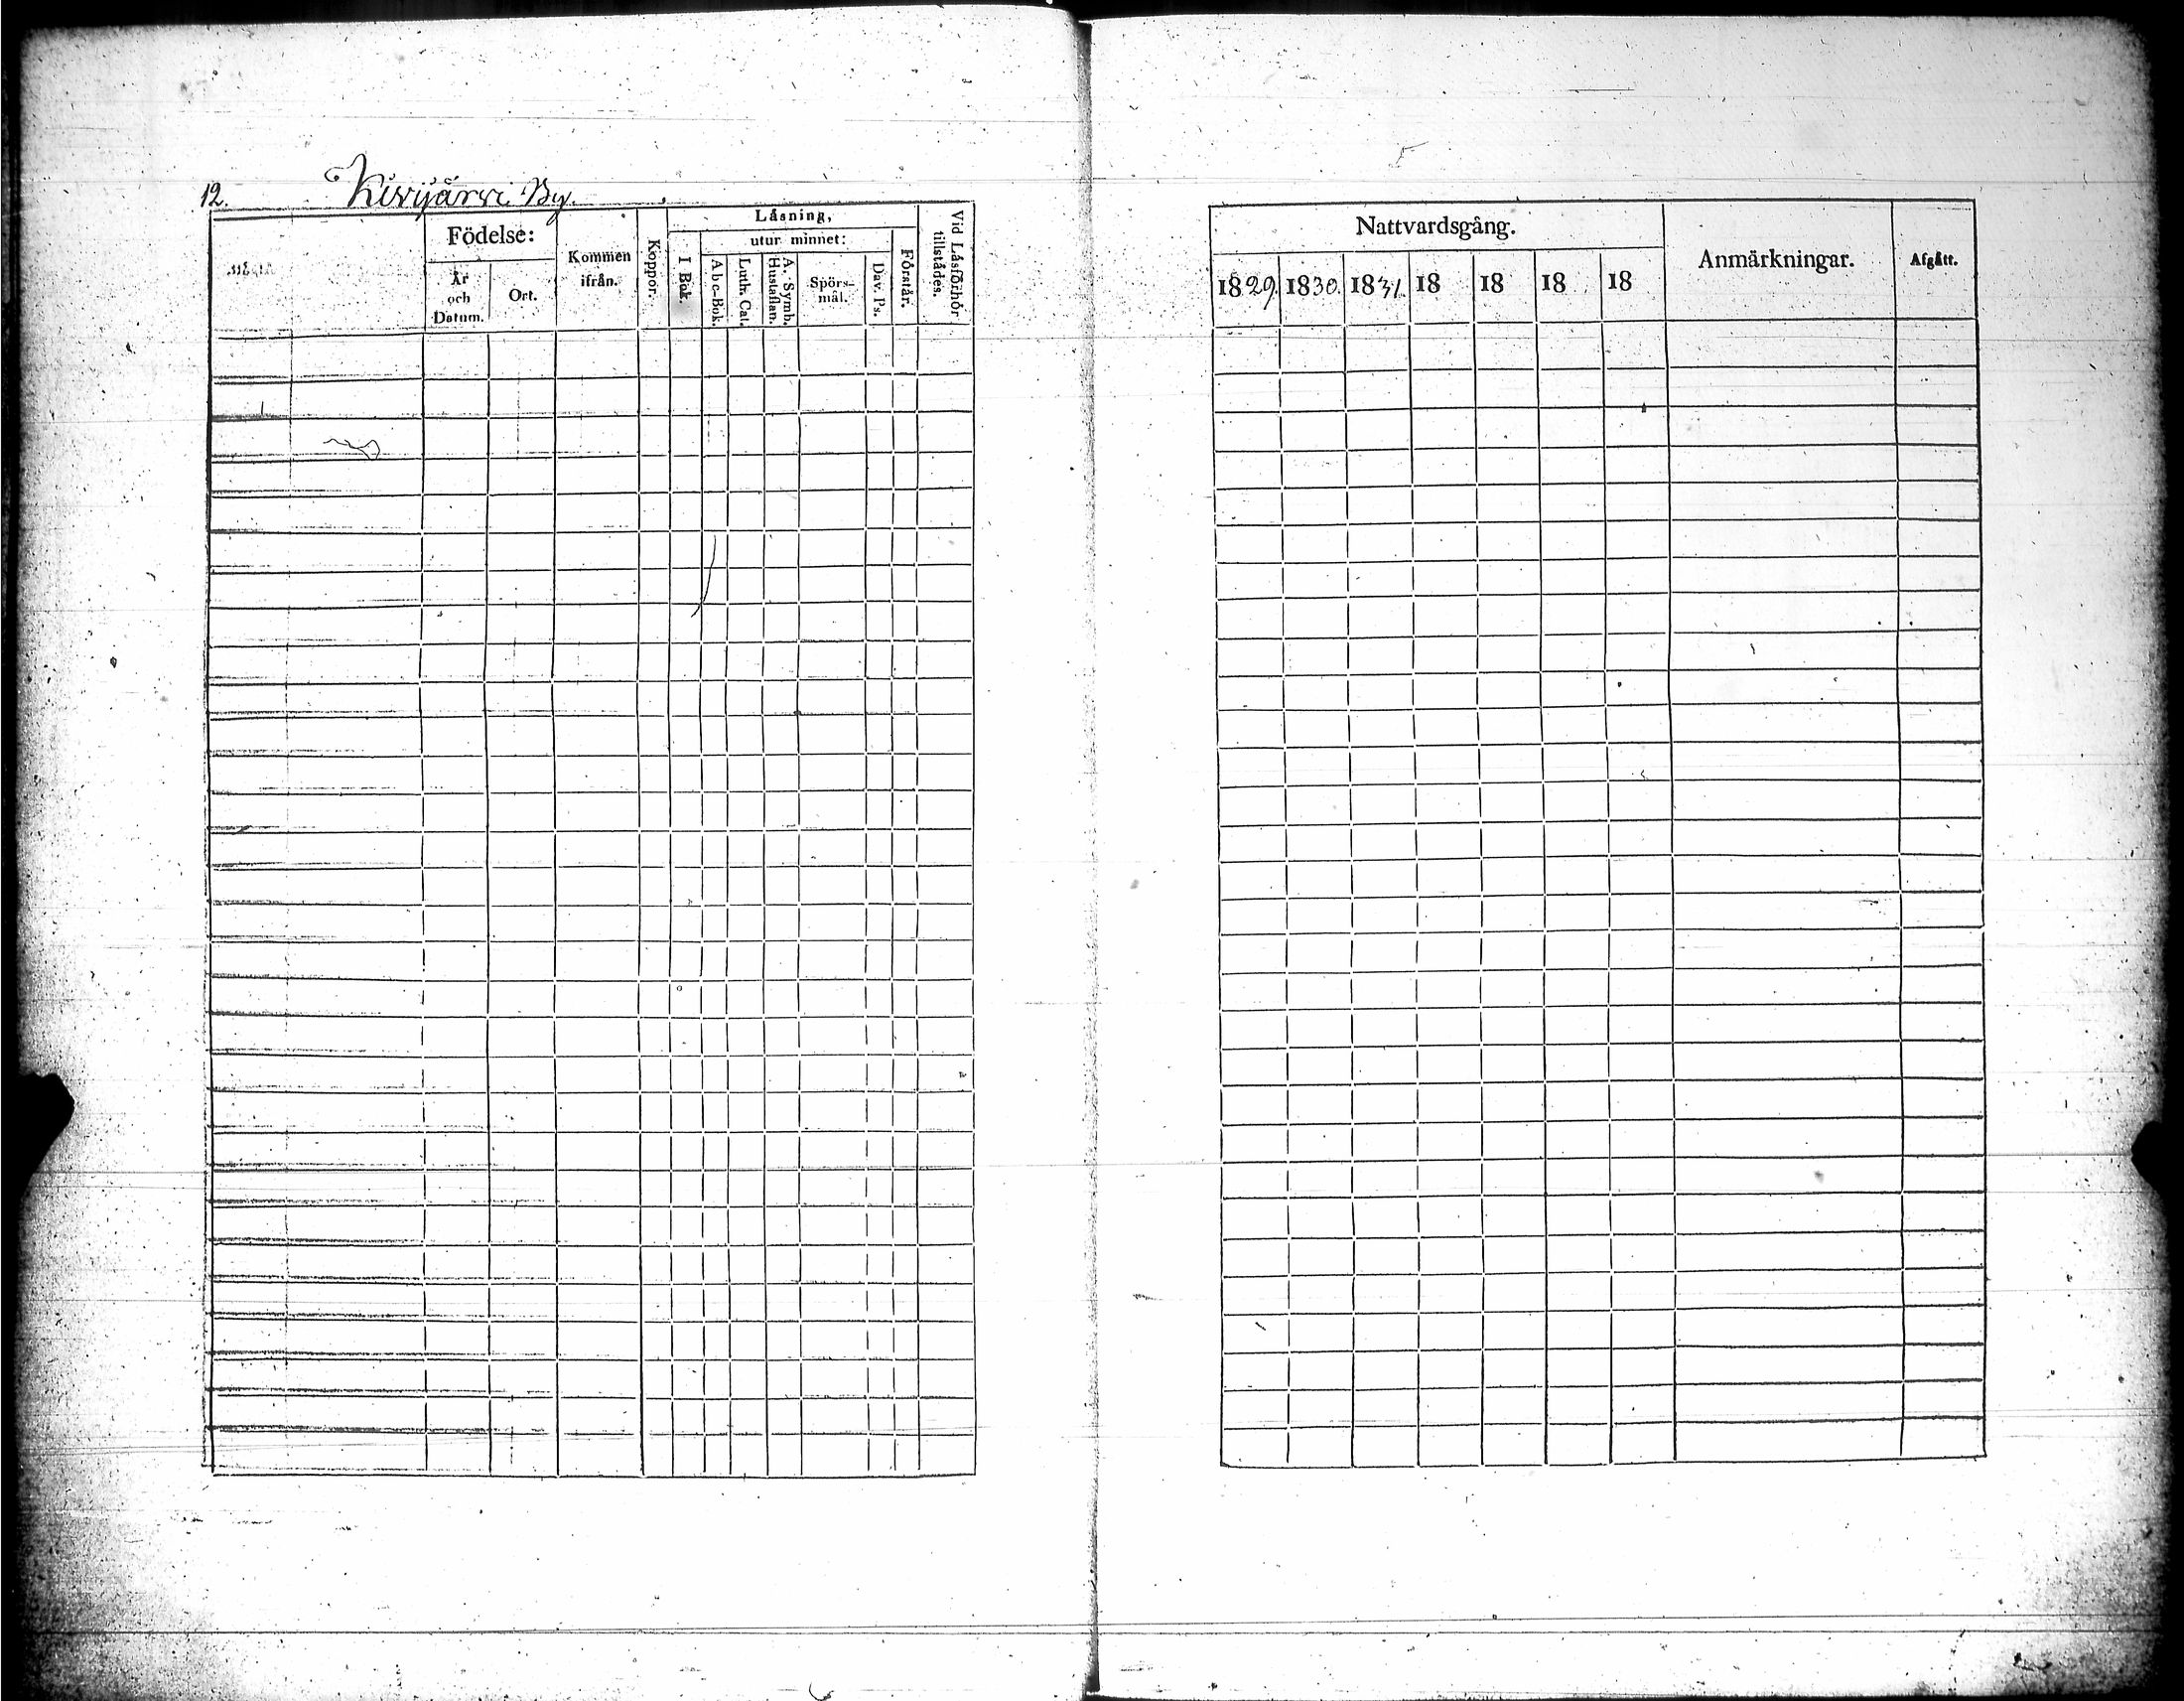 12. Kivijärvi By.
Födelse:
År och Datum.
Ort.
Kommen ifrån.
Koppor.
Läsning,
I Bok.
utur minnet:
Abc-Bok.
Luth. Cat.
A. Symb. Hustaflan.
Spörsmål.
Dav. Ps.
Förstår.
Vid Läsförhör tillstädes.
Nattvardsgång.
1829. 1830. 1831. 18 18 18 18
Anmärkningar.
Afgått.